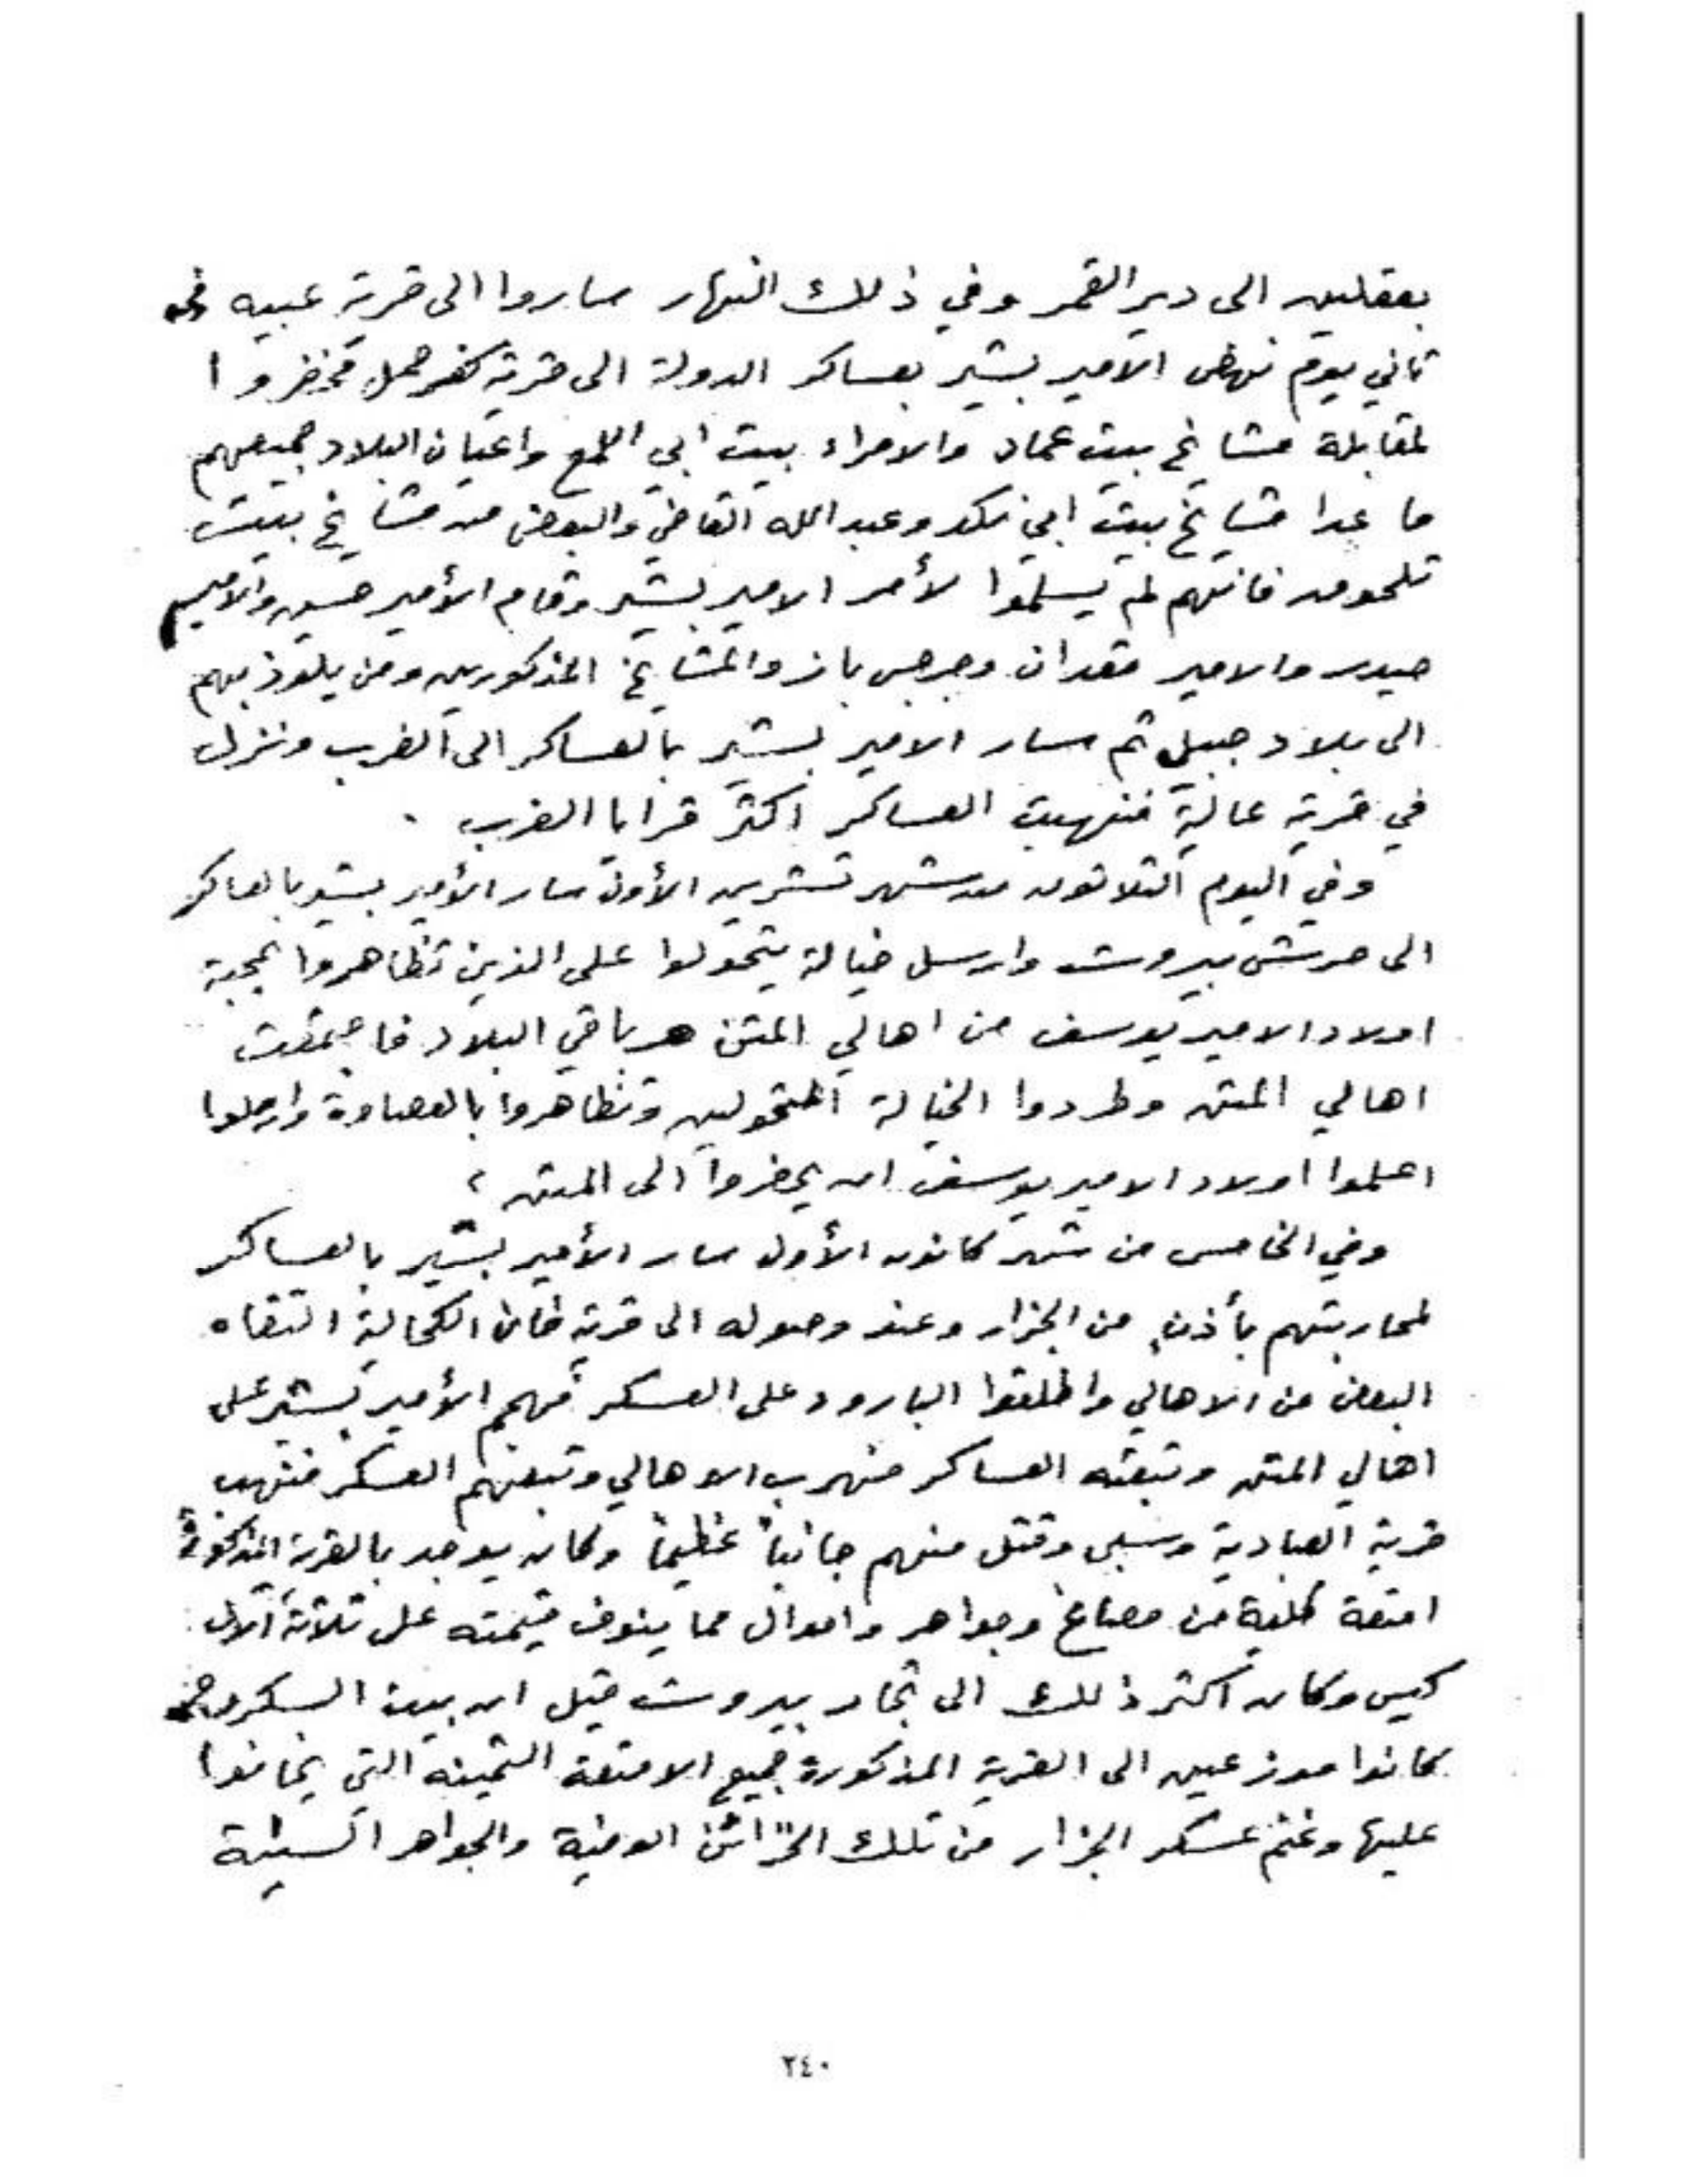 بعقلين الى دير القمر وفي ذلك النهار ساروا الى قرية عبيه في
ثاني يوم نهض الامير بشير بعساكر الدولة الى قرية كفرحمل فحضروا
لمقابلة مشايخ بيت عماد والامراء بيت ابي اللمع واعيان البلاد جميعهم
ما عدا مشايخ بيت ابي نكد وعبدالله القاضي والبعض من مشايخ بيت
تلحوق فانهم لم يسلموا لأمر الامير بشير وقام الأمير حسين والامير
حيدر والامير قعدان وجرجس باز والمشايخ المذكورين ومن يلوذ بهم
الى بلاد جبيل ثم سار الامير بشير بالعساكر الى الغرب ونزل
في قرية عالية فنهبت العساكر اكثر قرايا الغرب .
وفي اليوم الثلاثون من شهر تشرين الأول سار الأمير بشير بالعساكر
الى حرش بيروت وارسل خيالة يتحولوا على الذين تظاهروا بمحبة
اولاد الامير يوسف من اهالي المتن وباقي البلاد فاجتمعت
اهالي المتن وطردوا الخيالة المتحولين وتظاهروا بالعصاوة وارسلوا
اعلموا اولاد الامير يوسف ان يحضروا الى المتن ،
وفي الخامس من شهر كانون الأول سار الأمير بشير بالعساكر
لمحاربتهم بأذن من الجزار وعند وصوله الى قرية خان الكحالة التقاه
البعض من الاهالي واطلقوا البارود على العسكر فهجم الأمير بشير على
اهالي المتن وتبعته العساكر فهرب الاهالي وتبعهم العسكر فنهب
قرية العبادية وسبى وقتل منهم جانباً عظيماً وكان يوجد بالقرية المذكورة
امتعة كلية من مصاغ وجواهر واموال مما ينوف قيمته على ثلاثة آلاف
كيس وكان اكثر ذلك الى تجار بيروت قيل ان بيت السكروج
كانوا موزعين الى القرية المذكورة جميع الامتعة الثمينة التي يخافوا
عليها وغنم عسكر الجزار من تلك الخزائن الوفية والجواهر السنية
٢٤٠